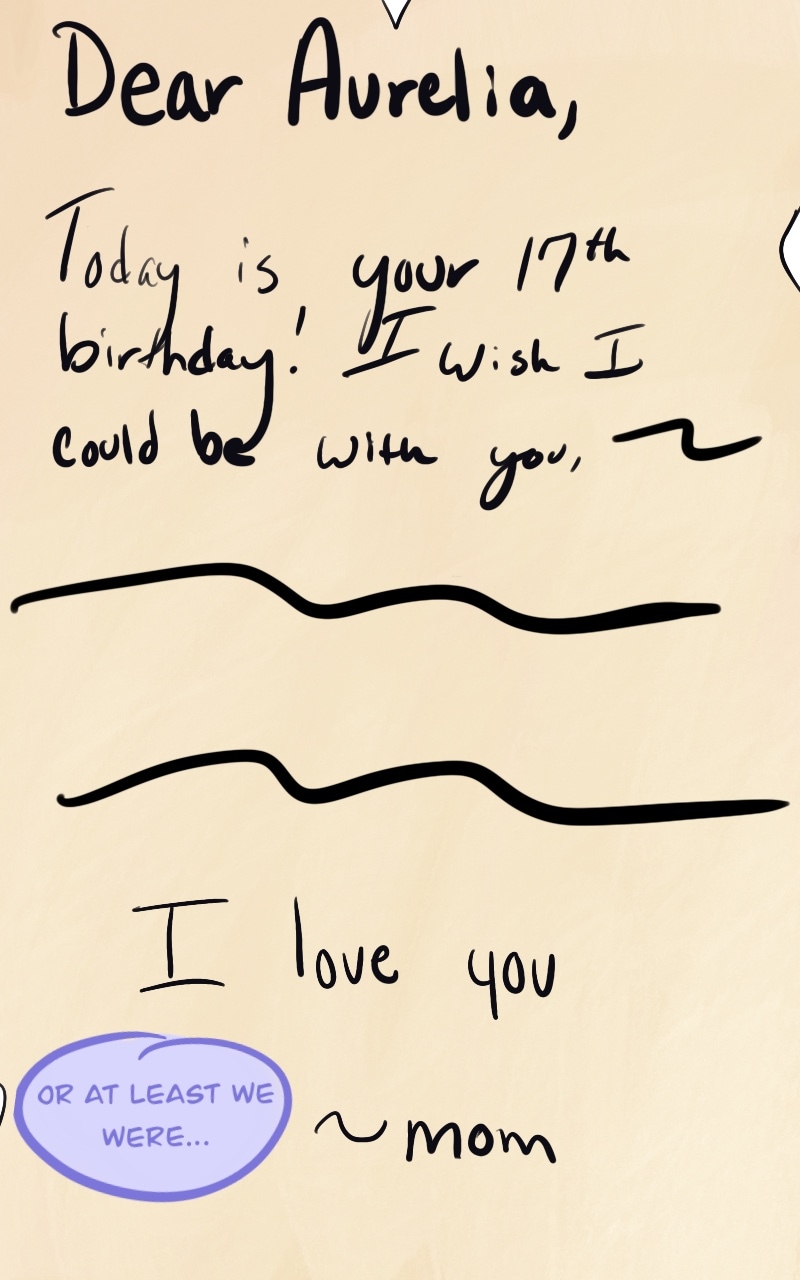 Dear Aurelia,
Today is your 17th
birthday! I wish I
could be with you,
I love you
OR AT LEAST WE
WERE...
~mom